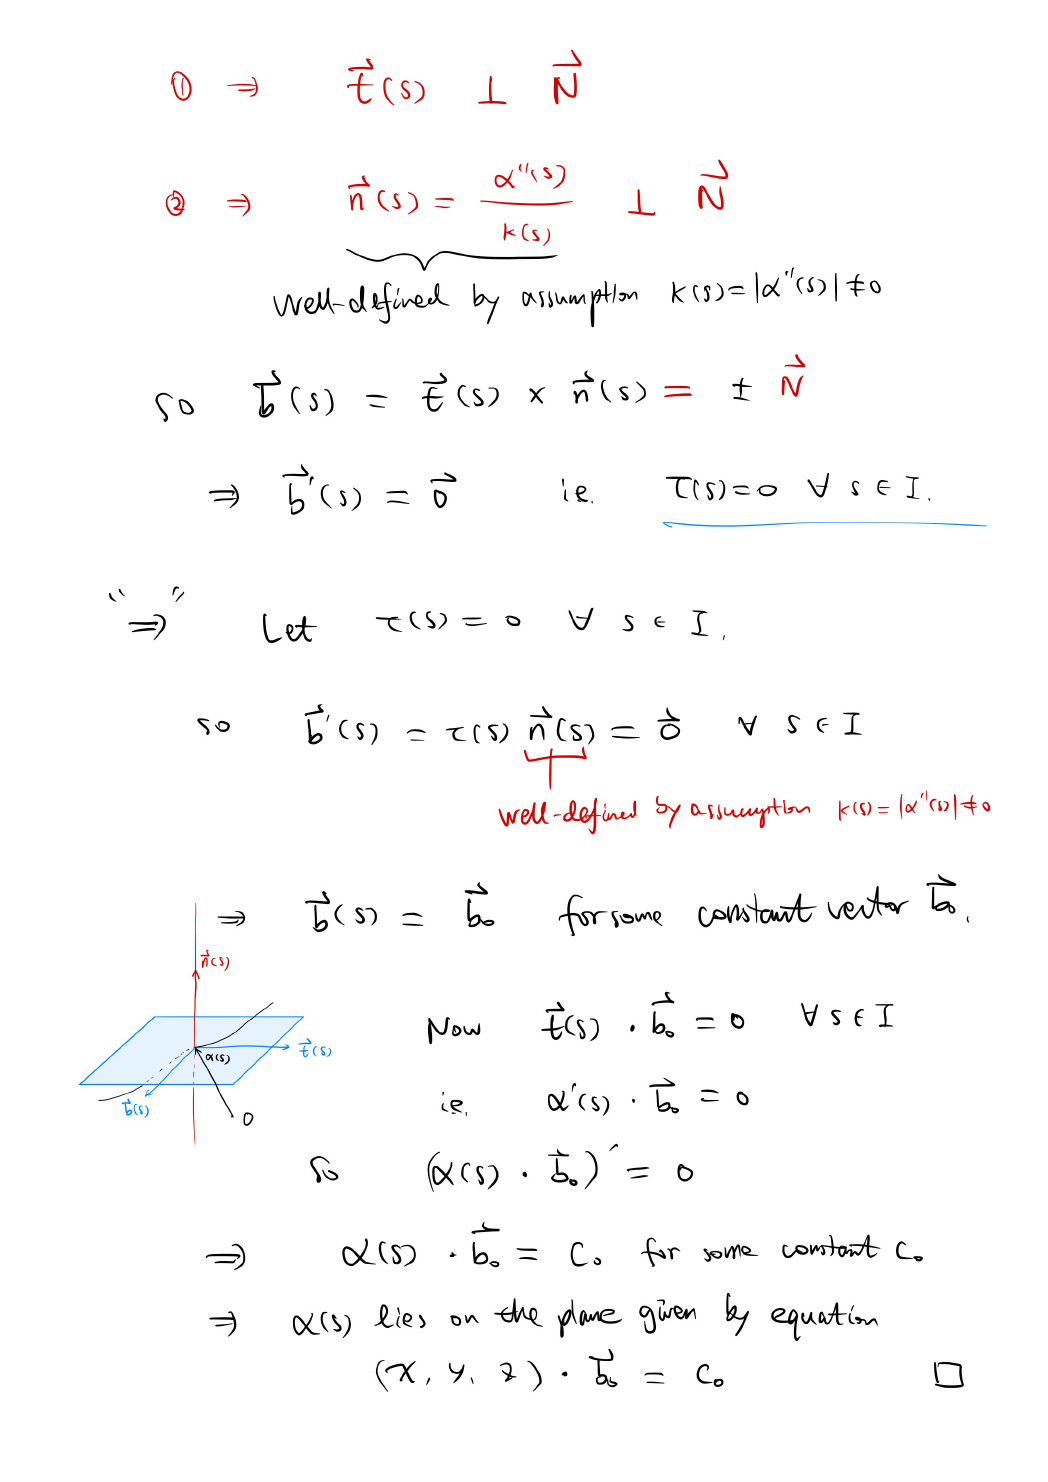 ① ⇒ t⃗(s) ⊥ N⃗
② ⇒ n⃗(s) = α''(s) / k(s) ⊥ N⃗
well-defined by assumption k(s) = |α''(s)| ≠ 0
so b⃗(s) = t⃗(s) × n⃗(s) = ± N⃗
⇒ b⃗'(s) = 0⃗ i.e. τ(s) = 0 ∀ s ∈ I.
"⇒" Let τ(s) = 0 ∀ s ∈ I.
so b⃗'(s) = τ(s) n⃗(s) = 0⃗ ∀ s ∈ I
well-defined by assumption k(s) = |α''(s)| ≠ 0
⇒ b⃗(s) = b⃗₀ for some constant vector b⃗₀.
n⃗(s)
α(s)
t⃗(s)
b⃗(s)
O
Now t⃗(s) · b⃗₀ = 0 ∀ s ∈ I
i.e. α'(s) · b⃗₀ = 0
So (α(s) · b⃗₀)' = 0
⇒ α(s) · b⃗₀ = C₀ for some constant C₀
⇒ α(s) lies on the plane given by equation
(x, y, z) · b⃗₀ = C₀ □